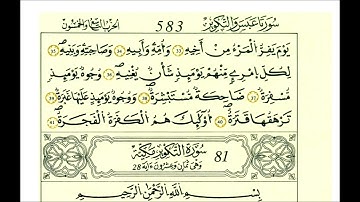 سورتا عبس والتكوير 583 الحزب التاسع والخمسون
يَوْمَ يَفِرُّ الْمَرْءُ مِنْ أَخِيهِ 34 وَأُمِّهِ وَأَبِيهِ 35 وَصَاحِبَتِهِ وَبَنِيهِ 36
لِكُلِّ امْرِئٍ مِنْهُمْ يَوْمَئِذٍ شَأْنٌ يُغْنِيهِ 37 وُجُوهٌ يَوْمَئِذٍ
مُسْفِرَةٌ 38 ضَاحِكَةٌ مُسْتَبْشِرَةٌ 39 وَوُجُوهٌ يَوْمَئِذٍ عَلَيْهَا غَبَرَةٌ 40
تَرْهَقُهَا قَتَرَةٌ 41 أُوْلَئِكَ هُمُ الْكَفَرَةُ الْفَجَرَةُ
سورة التكوير مكية 81
وهي ثمان وعشرون ءاية 28
بِسْمِ اللَّهِ الرَّحْمَنِ الرَّحِيمِ